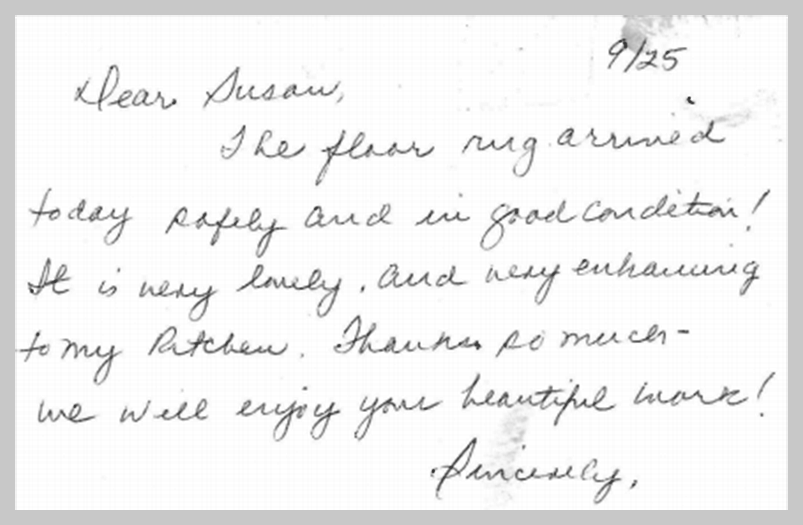 9/25
Dear Susan,
The floor rug arrived
today safely and in good condition!
It is very lovely, and very enhancing
to my kitchen. Thanks so much-
we will enjoy your beautiful work!
Sincerely,